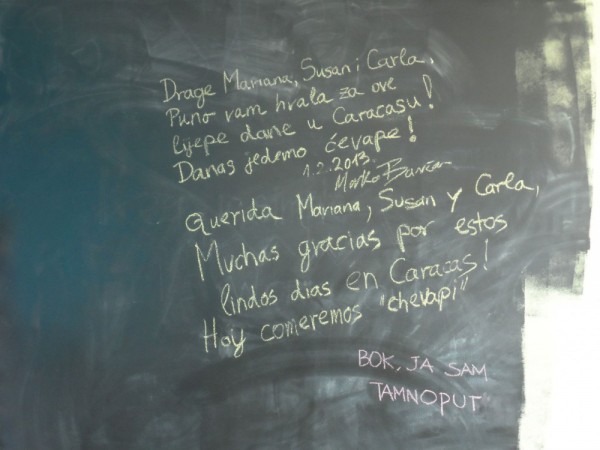 Drage Mariana, Susan i Carla,
Puno vam hvala za ove
lijepe dane u Caracasu!
Danas jedemo ćevape!
1.2.2013.
Marko
Querida Mariana, Susan y Carla,
Muchas gracias por estos
lindos dias en Caracas!
Hoy comeremos "chevapi"
BOK, JA SAM
TAMNOPUT